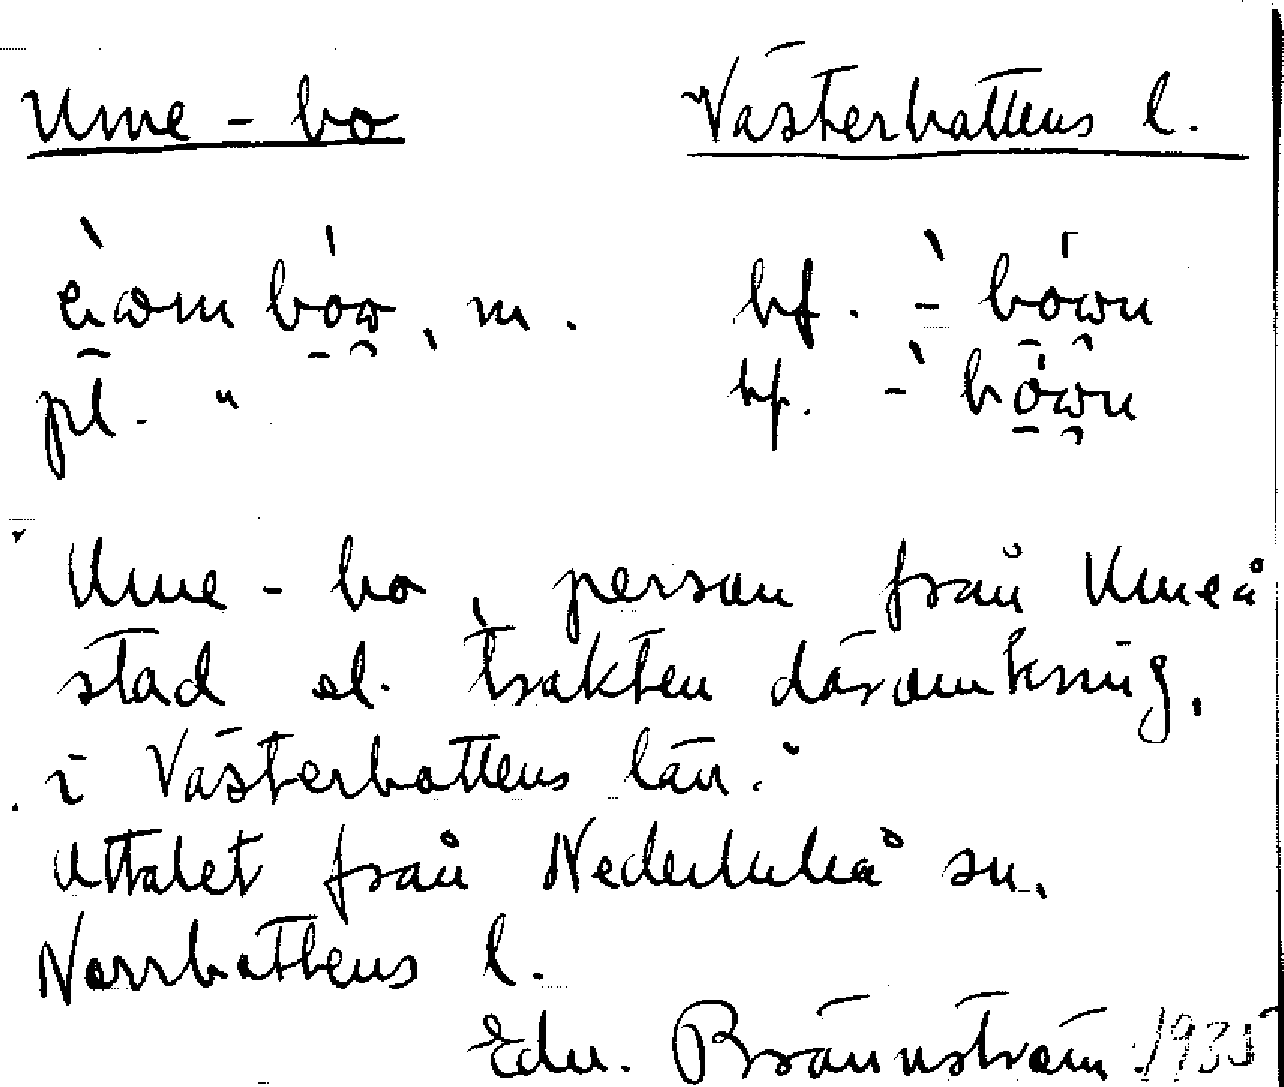 Ume - bo Västerbottens l.
m. bf.
pl. " bf.
Ume - bo, person från Umeå
stad el. trakten däromkring,
i Västerbottens län.
Uttalet från Nederluleå sn,
Norrbottens l.
Edv. Brännström 1935